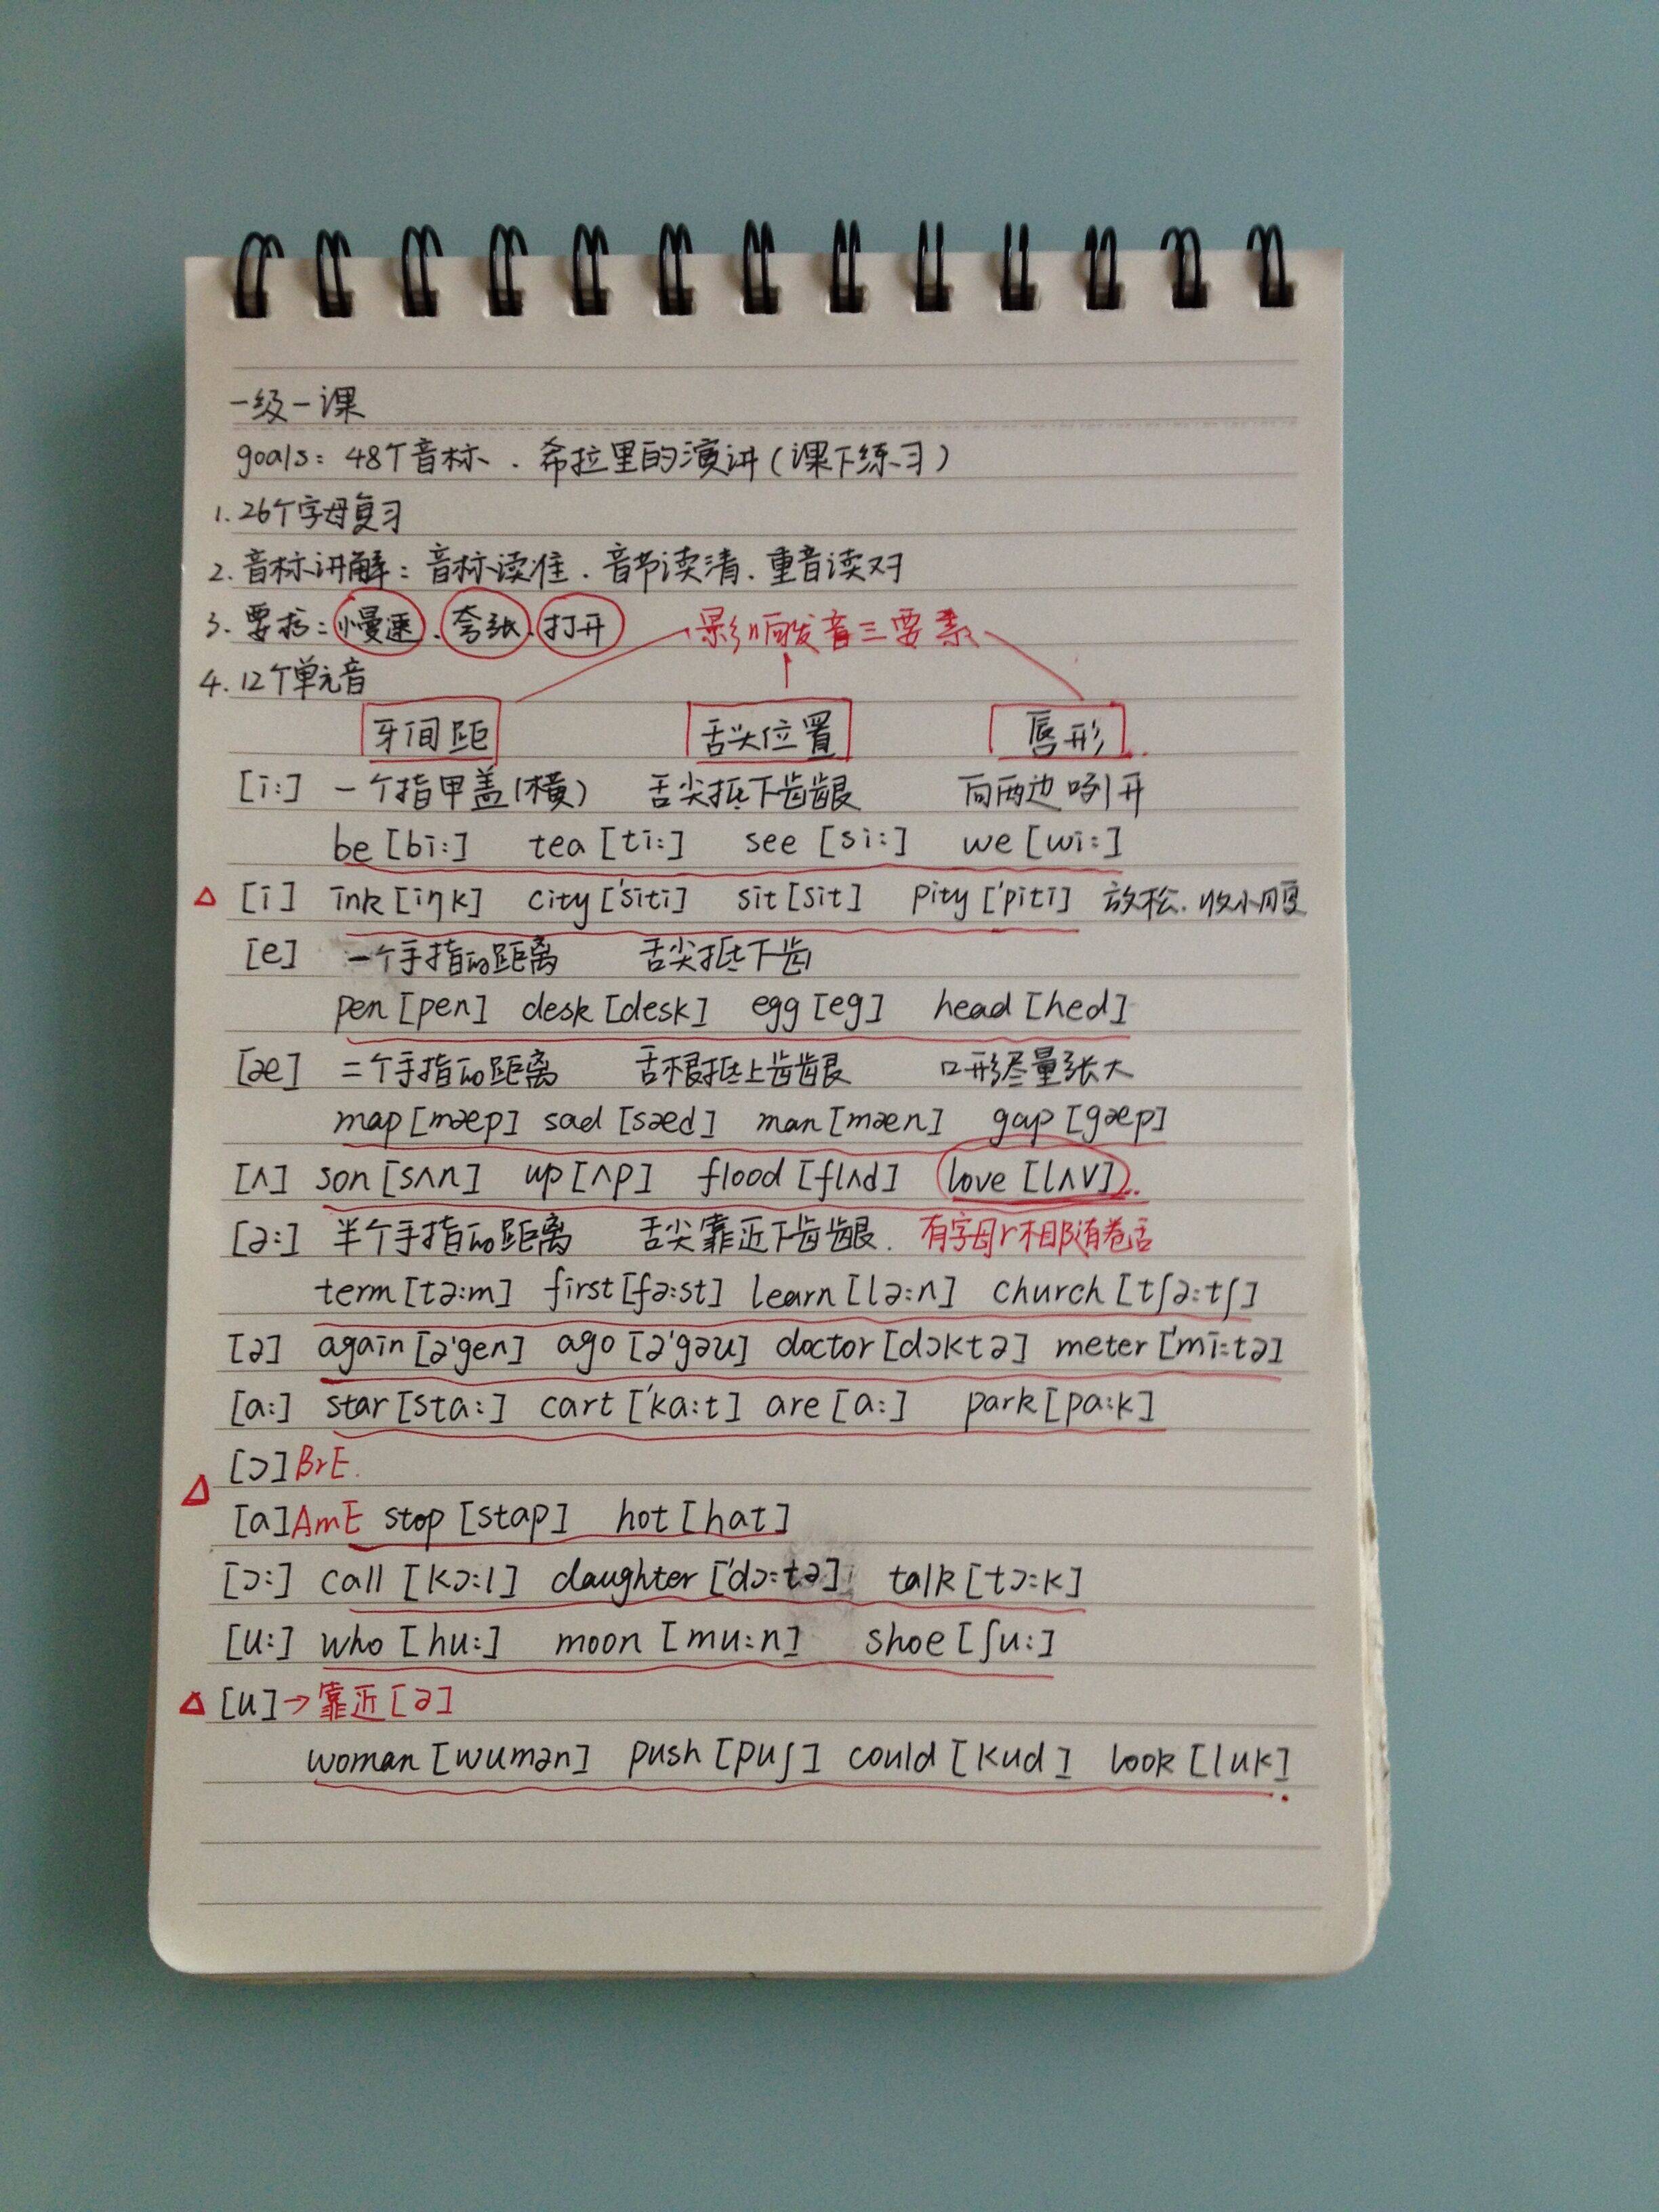 一级一课
goals: 48个音标、希拉里的演讲(课下练习)
1. 26个字母复习
2. 音标讲解: 音标读准、音节读清、重音读对
3. 要求: 慢速、夸张、打开 影响发音三要素
4. 12个单元音
牙间距 舌头位置 唇形
[i:] 一个指甲盖(横) 舌尖抵下齿龈 向两边咧开
be [bi:] tea [ti:] see [si:] we [wi:]
△ [i] ink [iηk] city ['siti] sit [sit] pity ['piti] 放松、收小腹
[e] 一个手指的距离 舌尖抵下齿
pen [pen] desk [desk] egg [eg] head [hed]
[æ] 二个手指的距离 舌根抵上齿龈 口形尽量张大
map [mæp] sad [sæd] man [mæn] gap [gæp]
[ʌ] son [sʌn] up [ʌp] flood [flʌd] love [lʌv]
[ə:] 半个手指的距离 舌尖靠近下齿龈. 有字母r相随卷舌
term [tə:m] first [fə:st] learn [lə:n] church [tʃə:tʃ]
[ə] again [ə'gen] ago [ə'gəu] doctor [dɔktə] meter ['mi:tə]
[a:] star [sta:] cart ['ka:t] are [a:] park [pa:k]
[ɔ] BrE.
△
[a] AmE stop [stap] hot [hat]
[ɔ:] call [kɔ:l] daughter ['dɔ:tə] talk [tɔ:k]
[u:] who [hu:] moon [mu:n] shoe [ʃu:]
△ [u] → 靠近 [ə]
woman [wumən] push [puʃ] could [kud] look [luk]